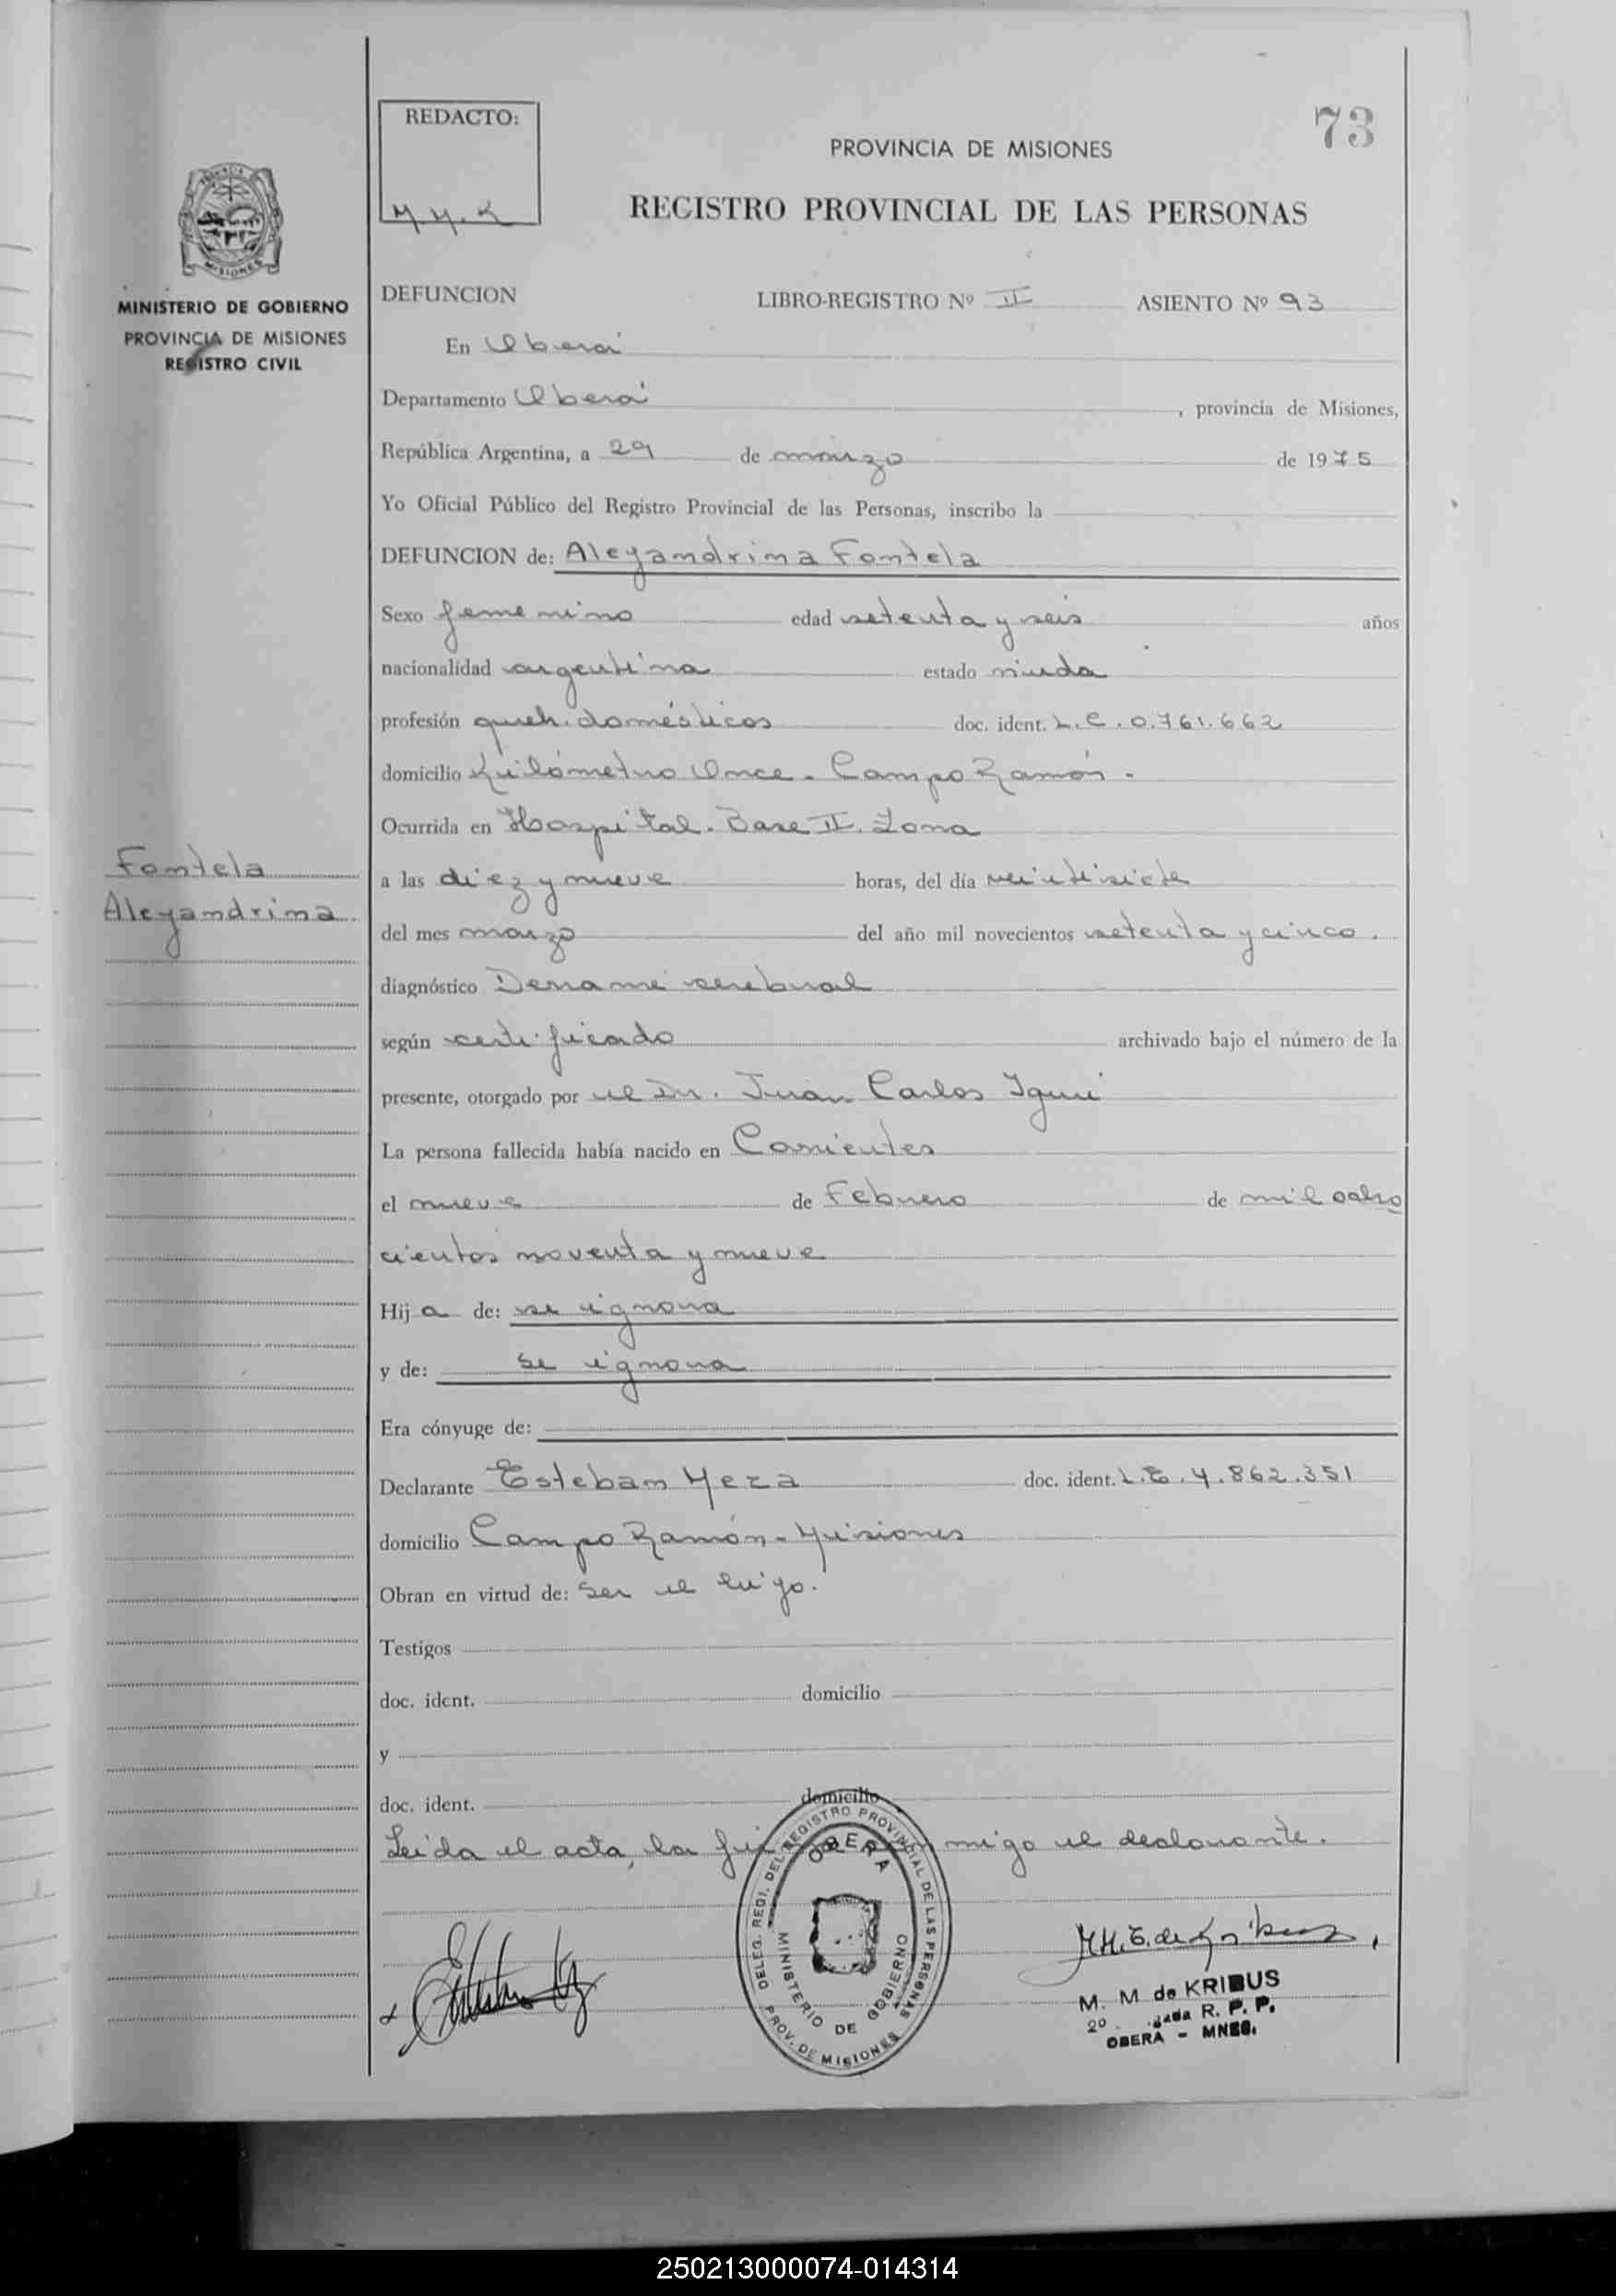 73
REDACTO:
M.M.K
PROVINCIA DE MISIONES
REGISTRO PROVINCIAL DE LAS PERSONAS
MISIONES
MINISTERIO DE GOBIERNO
PROVINCIA DE MISIONES
REGISTRO CIVIL
Fontela
Aleyandrina
DEFUNCION LIBRO-REGISTRO Nº II ASIENTO Nº 93
En Oberá
Departamento Oberá, provincia de Misiones,
República Argentina, a 29 de marzo de 1975
Yo Oficial Público del Registro Provincial de las Personas, inscribo la
DEFUNCION de: Aleyandrina Fontela
Sexo femenino edad setenta y seis años
nacionalidad argentina estado viuda
profesión queh. domésticos doc. ident. L.C. 0.761.662
domicilio Kilómetro Once - Campo Ramón -
Ocurrida en Hospital. Base II. Zona
a las diez y nueve horas, del día veintisiete
del mes marzo del año mil novecientos setenta y cinco.
diagnóstico Derrame cerebral
según certificado archivado bajo el número de la
presente, otorgado por el Dr. Juan Carlos
La persona fallecida había nacido en Corrientes
el nueve de Febrero de mil ocho
cientos noventa y nueve
Hija de: se ignora
y de: se ignora
Era cónyuge de:
Declarante Esteban Meza doc. ident. L.E. 4.862.351
domicilio Campo Ramón - Misiones
Obran en virtud de: Ser el hijo.
Testigos
doc. ident. domicilio
y
doc. ident. domicilio
Leida el acta, la migo el declarante.
DELEG. REGI. DEL REGISTRO PROVINCIAL DE LAS PERSONAS
PROV. DE MISIONES
OBERA
MINISTERIO DE GOBIERNO
M. M de KRIBUS
R. P. P.
OBERA - MNES.
250213000074-014314